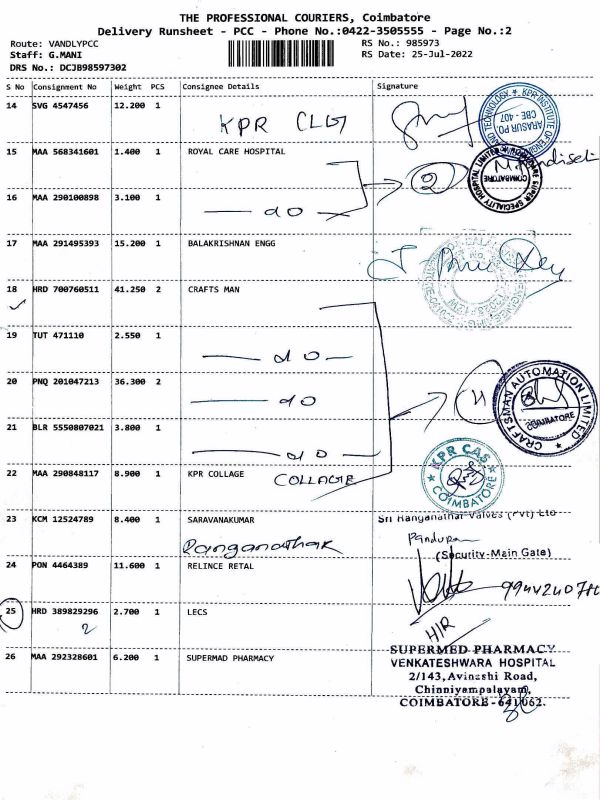 THE PROFESSIONAL COURIERS, Coimbatore
Delivery Runsheet - PCC - Phone No.:0422-3505555 - Page No.:2
Route: VANDLYPCC RS No.: 985973
Staff: G.MANI RS Date: 25-Jul-2022
DRS No.: DCJB98597302
S No Consignment No Weight PCS Consignee Details Signature
14 SVG 4547456 12.200 1 KPR CLG
KPR INSTITUTE OF TECHNOLOGY ARASUR PO CBE - 407
15 MAA 568341601 1.400 1 ROYAL CARE HOSPITAL
2
SUPER SPECIALITY HOSPITAL LIMITED COIMBATORE
16 MAA 290100898 3.100 1 do
17 MAA 291495393 15.200 1 BALAKRISHNAN ENGG
18 HRD 700760511 41.250 2 CRAFTS MAN
19 TUT 471110 2.550 1 do
20 PNQ 201047213 36.300 2 do
CRAFTSMAN AUTOMATION LIMITED COIMBATORE
21 BLR 5550807021 3.800 1 do
22 MAA 290848117 8.900 1 KPR COLLAGE
COLLAGE
KPR CAS COIMBATORE
23 KCM 12524789 8.400 1 SARAVANAKUMAR
Sri Ranganathar Valves (Pvt) Ltd
(Security-Main Gate)
24 PON 4464389 11.600 1 RELINCE RETAL
25 HRD 389829296 2.700 1 LECS
2
H/R
26 MAA 292328601 6.200 1 SUPERMAD PHARMACY
SUPERMED PHARMACY
VENKATESHWARA HOSPITAL
2/143, Avinashi Road,
Chinniyampalayam,
COIMBATORE - 641062.